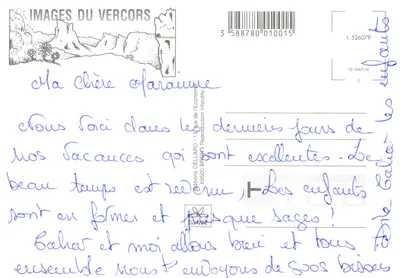 IMAGES DU VERCORS
3 588780 010015
L 526079
Ma Chère
Nous voici dans les derniers jours de
nos vacances qui sont excellentes. Le
beau temps est revenu. Les enfants
sont en forme et presque sages!
et moi allons bien et tous
ensemble nous t'envoyons de gros bisous
les enfants